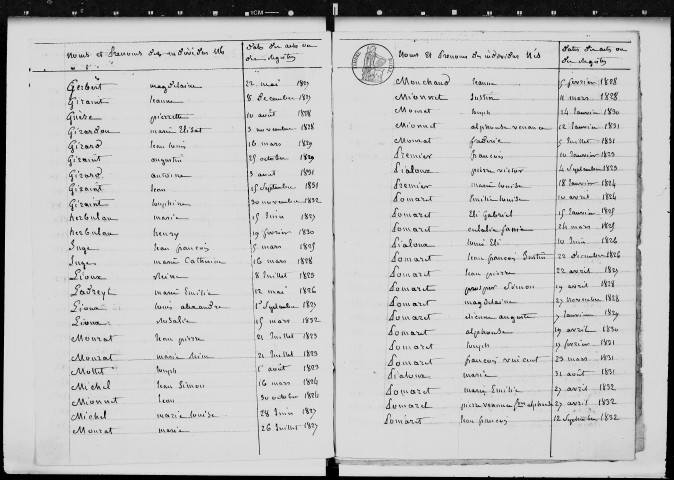 Noms et Prenoms des individus Nés Dates des actes ou des Registres
Gerbert magdelaine 22 mai 1827
Giraint Jeanne 8 decembre 1827
Guise pierrette 10 août 1828
Girardon marie Elisat 3 novembre 1828
Girard Jean louis 16 mars 1829
Giraint augustin 25 octobre 1829
Girard antoine 3 avril 1831
Giraint Jean 15 Septembre 1831
Giraint Josephine 30 novembre 1832
herbulau marie 15 Juin 1827
herbulau henry 19 fevrier 1830
Inge Jean francois 5 mars 1825
Inge marie Catherine 16 mars 1828
Lioux Reine 8 Juillet 1825
marie Emilie 12 mai 1826
Lioux louis alexandre 1er Septembre 1827
Lioux Rosalie 15 mars 1832
Mourat Jean pierre 21 Juillet 1823
Mourat marie Reine 21 Juillet 1823
Mollet Joseph 1er août 1823
Michel Jean Simon 16 mars 1824
Mionnet Jean 30 octobre 1824
Michel marie louise 28 Juin 1827
Mourat marie 26 Juillet 1827
Noms et Prenoms des individus Nés Dates des actes ou des Registres
Mouchand Jeanne 5 fevrier 1828
Mionnet Justin 11 mars 1828
Mourat Joseph 24 Janvier 1830
Mionnet alphonse venance 12 Janvier 1831
Mourat frederic 5 Juillet 1831
Premier francois 10 Janvier 1823
Pialoux pierre victor 4 Septembre 1823
Premier marie louise 18 Janvier 1824
Pomaret Emilie louise 10 avril 1824
Pomaret Eli Gabriel 15 Janvier 1825
Pomaret eulalie 24 mars 1825
Pialoux Louis Eli 10 Juin 1826
Pomaret Jean francois Justin 22 decembre 1826
Pomaret Jean pierre 22 avril 1827
Pomaret prosper Simon 19 avril 1828
Pomaret magdelaine 27 novembre 1828
Pomaret etienne auguste 7 Janvier 1829
Pomaret alphonse 19 avril 1830
Pomaret Joseph 19 fevrier 1831
Pomaret francois vincent 23 mars 1831
Pialoux marie 31 août 1831
Pomaret marie Emilie 27 avril 1832
Pomaret pierre venance alphonse 27 avril 1832
Pomaret Jean francois 12 Septembre 1832